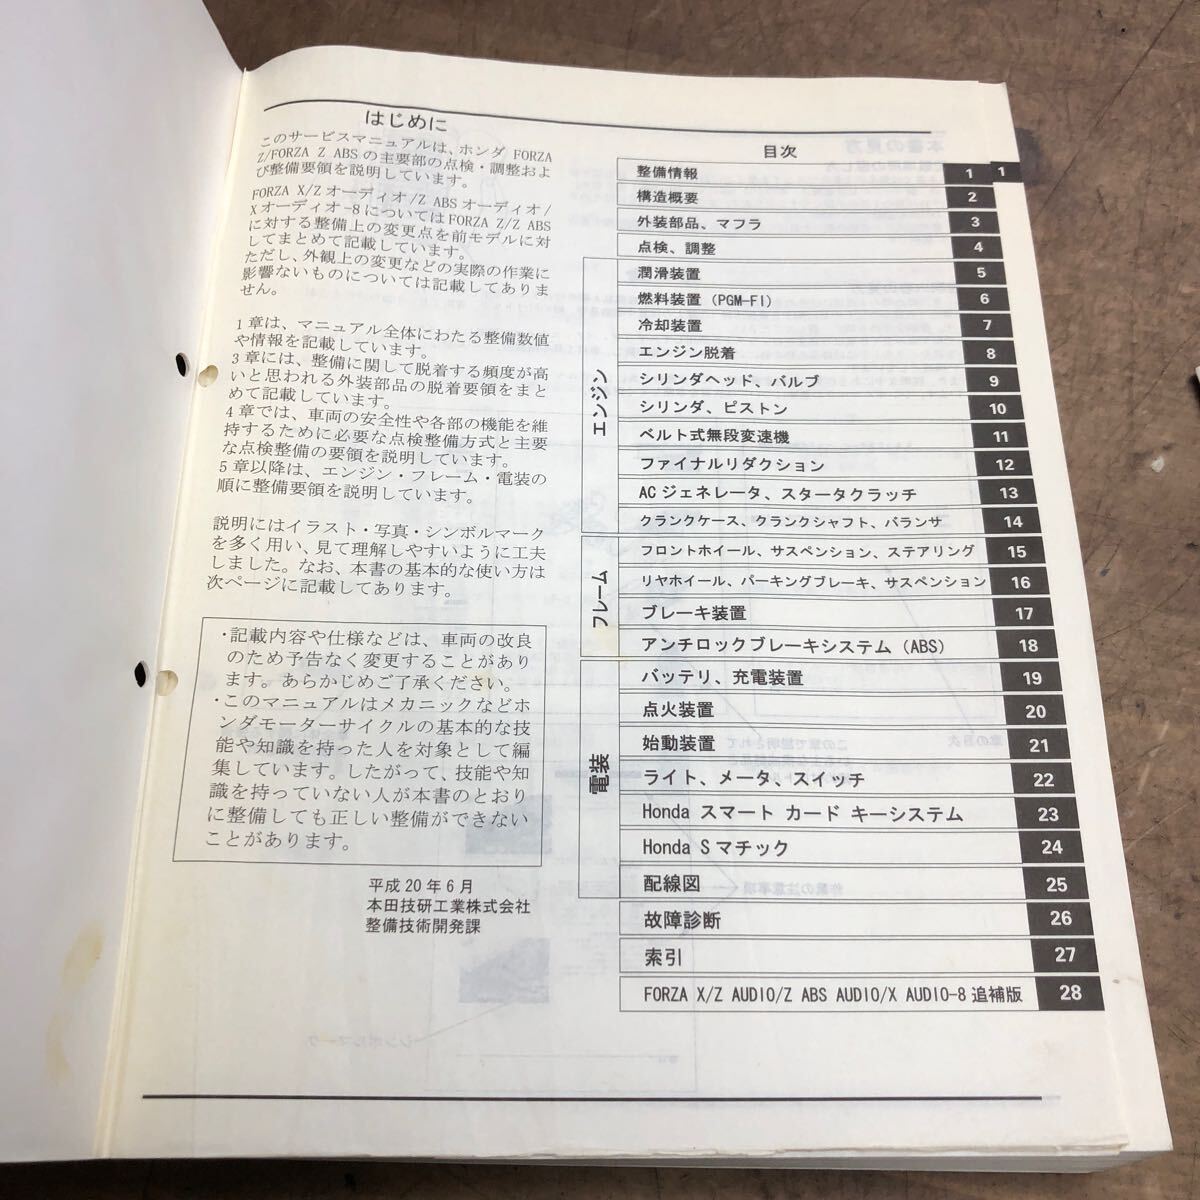 はじめに
このサービスマニュアルは、ホンダ FORZA
Z/FORZA Z ABS の主要部の点検・調整およ
び整備要領を説明しています。
FORZA X/Z オーディオ/Z ABS オーディオ/
X オーディオ-8 については FORZA Z/Z ABS
に対する整備上の変更点を前モデルに対
してまとめて記載しています。
ただし、外観上の変更などの実際の作業に
影響ないものについては記載してありま
せん。
1 章は、マニュアル全体にわたる整備数値
や情報を記載しています。
3 章には、整備に関して脱着する頻度が高
いと思われる外装部品の脱着要領をまと
めて記載しています。
4 章では、車両の安全性や各部の機能を維
持するために必要な点検整備方式と主要
な点検整備の要領を説明しています。
5 章以降は、エンジン・フレーム・電装の
順に整備要領を説明しています。
説明にはイラスト・写真・シンボルマーク
を多く用い、見て理解しやすいように工夫
しました。なお、本書の基本的な使い方は
次ページに記載してあります。
・記載内容や仕様などは、車両の改良
のため予告なく変更することがあり
ます。あらかじめご了承ください。
・このマニュアルはメカニックなどホ
ンダモーターサイクルの基本的な技
能や知識を持った人を対象として編
集しています。したがって、技能や知
識を持っていない人が本書のとおり
に整備しても正しい整備ができない
ことがあります。
平成 20 年 6 月
本田技研工業株式会社
整備技術開発課
目次
整備情報 1 1
構造概要 2
外装部品、マフラ 3
点検、調整 4
エンジン
潤滑装置 5
燃料装置 (PGM-FI) 6
冷却装置 7
エンジン脱着 8
シリンダヘッド、バルブ 9
シリンダ、ピストン 10
ベルト式無段変速機 11
ファイナルリダクション 12
AC ジェネレータ、スタータクラッチ 13
クランクケース、クランクシャフト、バランサ 14
フレーム
フロントホイール、サスペンション、ステアリング 15
リヤホイール、パーキングブレーキ、サスペンション 16
ブレーキ装置 17
アンチロックブレーキシステム (ABS) 18
電装
バッテリ、充電装置 19
点火装置 20
始動装置 21
ライト、メータ、スイッチ 22
Honda スマート カード キーシステム 23
Honda S マチック 24
配線図 25
故障診断 26
索引 27
FORZA X/Z AUDIO/Z ABS AUDIO/X AUDIO-8 追補版 28